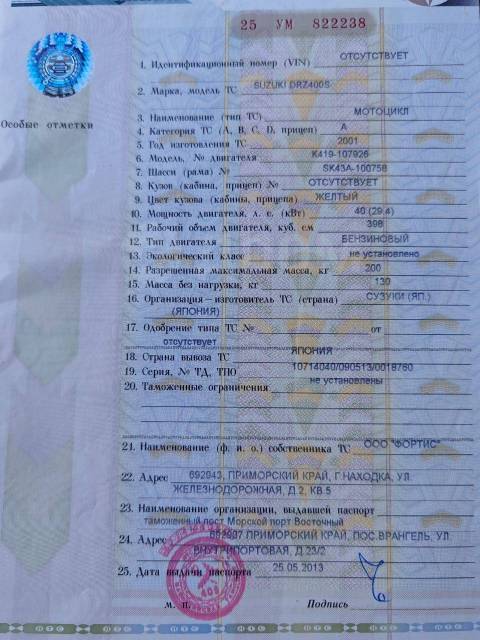 25 УМ 822238
Особые отметки
1. Идентификационный номер (VIN) ОТСУТСТВУЕТ
2. Марка, модель ТС SUZUKI DRZ400S
3. Наименование (тип ТС) МОТОЦИКЛ
4. Категория ТС (А, В, С, D, прицеп) А
5. Год изготовления ТС 2001
6. Модель, № двигателя K419-107926
7. Шасси (рама) № SK43A-100758
8. Кузов (кабина, прицеп) № ОТСУТСТВУЕТ
9. Цвет кузова (кабины, прицепа) ЖЕЛТЫЙ
10. Мощность двигателя, л. с. (кВт) 40 (29,4)
11. Рабочий объем двигателя, куб. см 398
12. Тип двигателя БЕНЗИНОВЫЙ
13. Экологический класс не установлено
14. Разрешенная максимальная масса, кг 200
15. Масса без нагрузки, кг 130
16. Организация – изготовитель ТС (страна) СУЗУКИ (ЯП.)
(ЯПОНИЯ)
17. Одобрение типа ТС № от
отсутствует
18. Страна вывоза ТС ЯПОНИЯ
19. Серия, № ТД, ТПО 10714040/090513/0018760
20. Таможенные ограничения не установлены
21. Наименование (ф. и. о.) собственника ТС ООО "ФОРТИС"
22. Адрес 692943, ПРИМОРСКИЙ КРАЙ, Г.НАХОДКА, УЛ.
ЖЕЛЕЗНОДОРОЖНАЯ, Д.2, КВ.5
23. Наименование организации, выдавшей паспорт
таможенный пост Морской порт Восточный
24. Адрес ПРИМОРСКИЙ КРАЙ, ПОС.ВРАНГЕЛЬ, УЛ.
ВНУТРИПОРТОВАЯ, Д.23/2
25. Дата выдачи паспорта 25.05.2013
М. П. Подпись